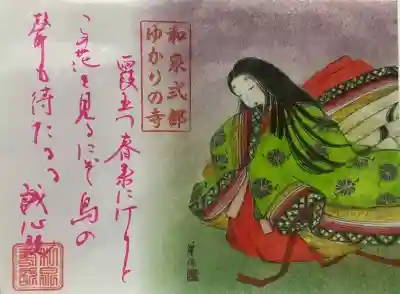 和泉式部
ゆかりの寺
霞立つ春来にけりと
この花を見るにぞ鳥の
聲も待たるる 誠心院